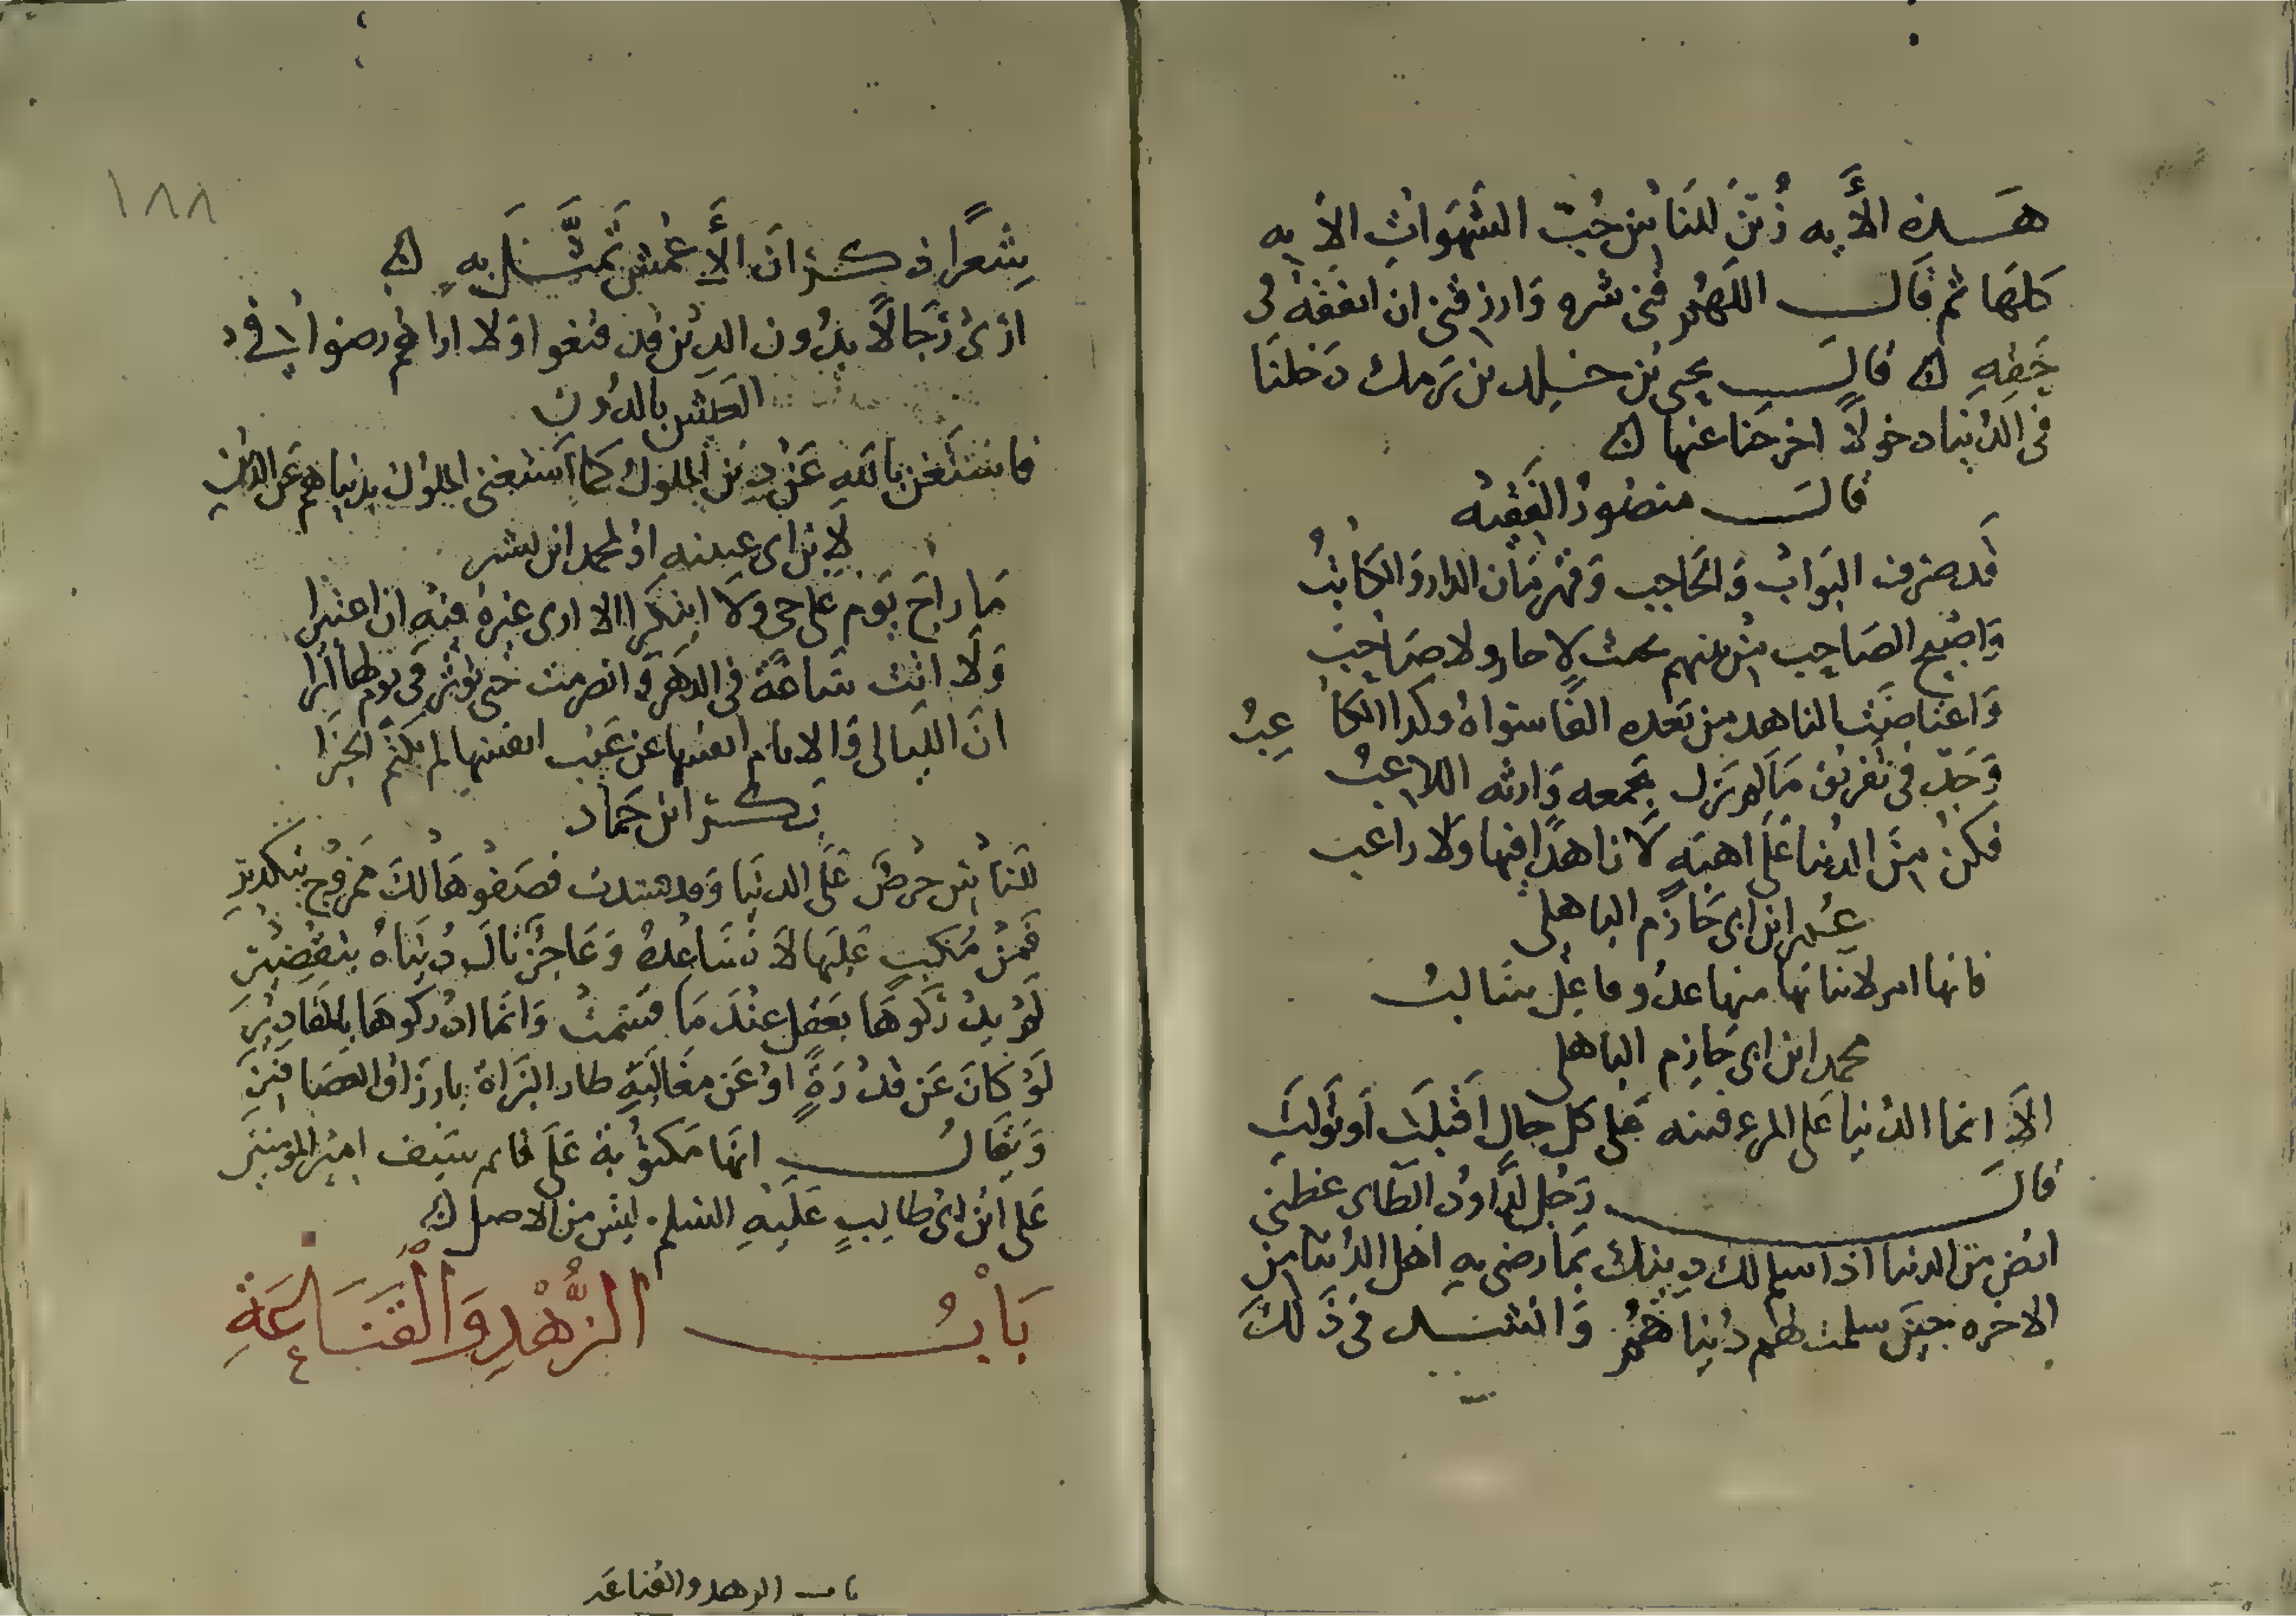 هذه الأيه زُيّنَ للنَاسِ حُبّ الشهَوَاتِ الايه
كلهَا ثم قَال اللهُم قنى شره وَارزقنى ان انفقهُ فى
حَقِهِ قالَ يحيى بن خلد بن بَرمك دَخلنَا
فى الدُنيَا دخولًا اخرجنا عنها
قالَ منصُورُ الفَقِيهُ
قَد صُرف البَوابُ وَالحَاجب وَقهرمَان الدار وَالكَاتبُ
وَاصْبَح الصَاحِب منهم لا جار ولا صَاحِبُ
وَاعتاضَت الناهد من بَعده وكدا الكاعبُ
وَجَدّ فى تفريق مَا لم يَزل يجمعه وَارثه اللاعبُ
فكن مِنَ الدنيا عَلَى اهبَه لَا ناهدًا فيها ولا راغب
عمر ابن ابى حَازم الباهلى
فانها امر لابنائها منها عدُو فاعِل سَالبُ
محمد ابن ابى حَازم الباهلى
الَا انما الدُنيَا عَلى المرءِ فتنه عَلى كل حالٍ اَقبلَت اَو تَولتِ
قالَ رَجُل لدَاودُ الطَاى عظنى
ارضَ مِن الدنيا اذا سلم لك دِينك بمَا رضى بهِ اهل الدُنيَا من
الاخره حِينَ سلمت لهم دُنيَاهُمُ وَانشد فى ذَلكَ
شِعرًا ذكر انَ الأَعْمَش تَمَثَّلَ بِهِ
ارَى رُجَالًا بدُون الدِين قد قنعوا وَلا اراهُم رضوا فى
العيش بالدُون
فاستَغن باللهِ عَن دِين الملوك كَمَا استغنى الملوك بدنياهم عَن الدين
لابن ابى عيينه اوُ لمحمد ابن بشر
مَا رَاحَ يَوم عَلى حى ولا ابتكَرا الا ارى عبرة فيهِ ان اعتبرا
وَلَا اتَت سَاعَةً فى الدهَر وَانصرمت حَتى تؤثر فى يوم لها أثرا
انَ اللَيالى وَالايام انفسها عن عَيب انفسها لم تكتُم الخبَرا
بَكر ابن حَماد
للنَاسِ حرصٌ عَلَى الدنيَا وَقد فسدت فصَفوهَا لكَ ممزوُج بتكدير
فَمن مُنكبٍ عَلَيهَا لَا تُسَاعِدهُ وَعَاجِزٌ نَالَ دُنيَاهُ بتقصير
لَم يدُركوهَا بعَقل عندَ مَا قسمتْ وَانمَا ادُركوهَا بالمقادير
لَوُ كَانَ عَن قدُرَةٍ اوُ عَن مغَالبَةٍ طار البُزَاة بارزَاق العصَافيرَ
وَيقَالُ انهَا مَكتوُبة عَلَى قايم سَيف اميُر المومنين
عَلى ابنُ ابى طالِبٍ عَلَيهِ السلم ليس من الاصل
بَابُ الزُّهْدِ وَالْقَنَاعَةِ
باب الزهد والقناعه
١٨٨